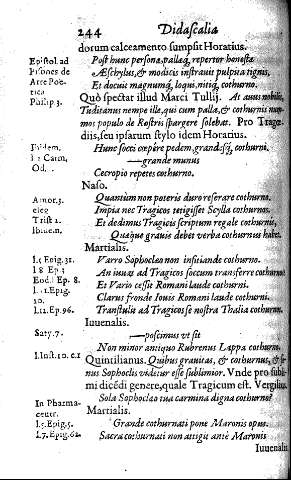 244 Didascalia
dorum calceamento sumpsit Horatius.
Epistol. ad Post hunc personæ, pallæq, repertor honestæ
Pisones de Æschylus, & modicis instrauit pulpita tignis,
Arte Poë- Et docuit magnumq, loqui, nitiq, cothurno.
tica
Philip.3. Quò spectat illud Marci Tullij. At auus nobilis,
Tuditanus nempe ille, qui cum palla, & cothurnis num-
mos populo de Rostris spargere solebat. Pro Tragœ-
diis, seu ipsarum stylo idem Horatius.
Ibidem. Hunc socci cœpere pedem, grandesq, cothurni.
l.2 Carm, —grande munus
Od. Cecropio repetes cothurno.
Naso.
Amor.3. Quantum non poteris duro reserare cothurno.
eleg Impia nec Tragicos tetigisset Scylla cothurnos.
Trist 2. Et dedimus Tragicis scriptum regale cothurnis,
Ibidem. Quæque grauis debet verba cothurnus habet.
Martialis.
l.5 Epig.31. Varro Sophocleo non inficiande cothurno.
l 8 Ep 3 An iuuat ad Tragicos soccum transferre cothurnos
Eod. Ep. 8. Et Vario cessit Romani laude cothurni.
l.11.Epig. Clarus fronde Iouis Romani laude cothurni.
10.
l.12.Ep.96. Transtulit ad Tragicos se nostra Thalia cothurnos.
Iuuenalis.
Saty.7. —poscimus vt sit
Non minor antiquo Rubrenus Lappa cothurno.
l.Inst.10.c.1 Quintilianus. Quibus grauitas, & cothurnus, & so-
nus Sophoclis videtur esse sublimior. Vnde pro subli-
mi dicēdi genere, quale Tragicum est. Vergilius
In Pharma- Sola Sophocleo tua carmina digna cothurno?
ceutr. Martialis.
l.5.Epig.5. Grande cothurnati pone Maronis opus.
l.7.Epig.62. Sacra cothurnati non attigit ante Maronis
Iuuenali